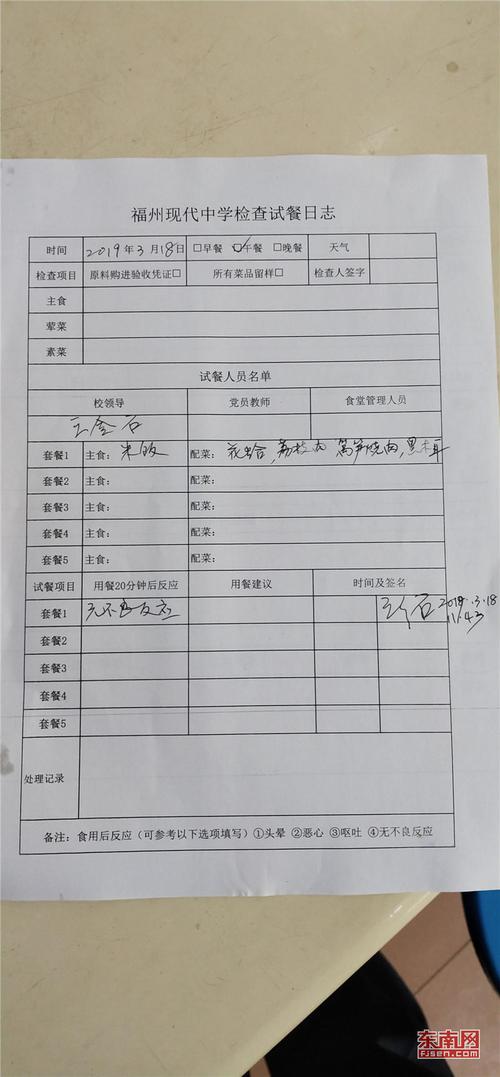 福州现代中学检查试餐日志
时间 2019年3月18日 □早餐 ☑午餐 □晚餐 天气
检查项目 原料购进验收凭证□ 所有菜品留样□ 检查人签字
主食
荤菜
素菜
试餐人员名单
校领导 党员教师 食堂管理人员
王金石
套餐1 主食: 米饭 配菜: 花蛤,荔枝肉 莴笋烧肉,黑木耳
套餐2 主食: 配菜:
套餐3 主食: 配菜:
套餐4 主食: 配菜:
套餐5 主食: 配菜:
试餐项目 用餐20分钟后反应 用餐建议 时间及签名
套餐1 无不良反应 2019.3.18
11:43
套餐2
套餐3
套餐4
套餐5
处理记录
备注:食用后反应(可参考以下选项填写)①头晕 ②恶心 ③呕吐 ④无不良反应
东南网
FJSEN.COM